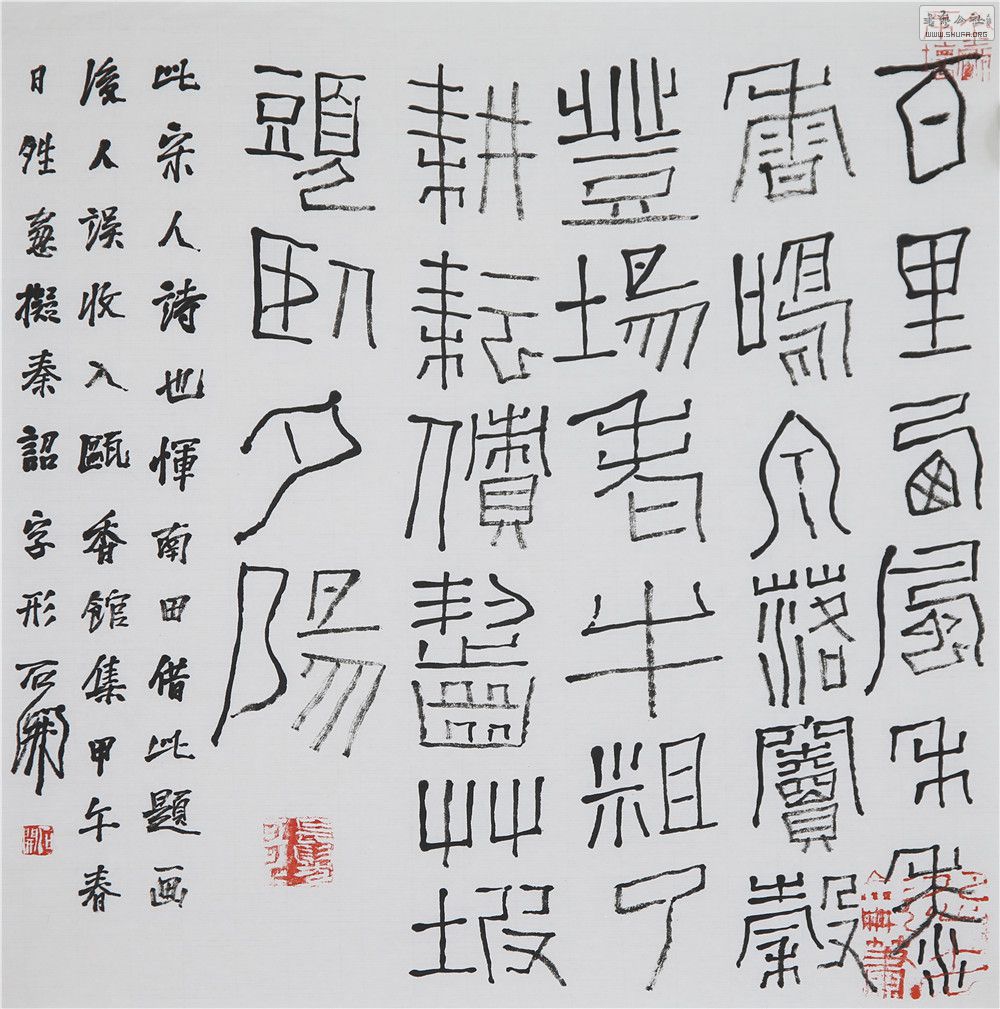 百里西風禾黍
香鳴泉落竇穀
登場老牛粗了
耕耘債齧艸坡
頭臥夕陽
此宋人詩也惲南田借此題画
後人誤收入甌香館集甲午春
日擬秦詔字形石開
WWW.SHUFA.ORG